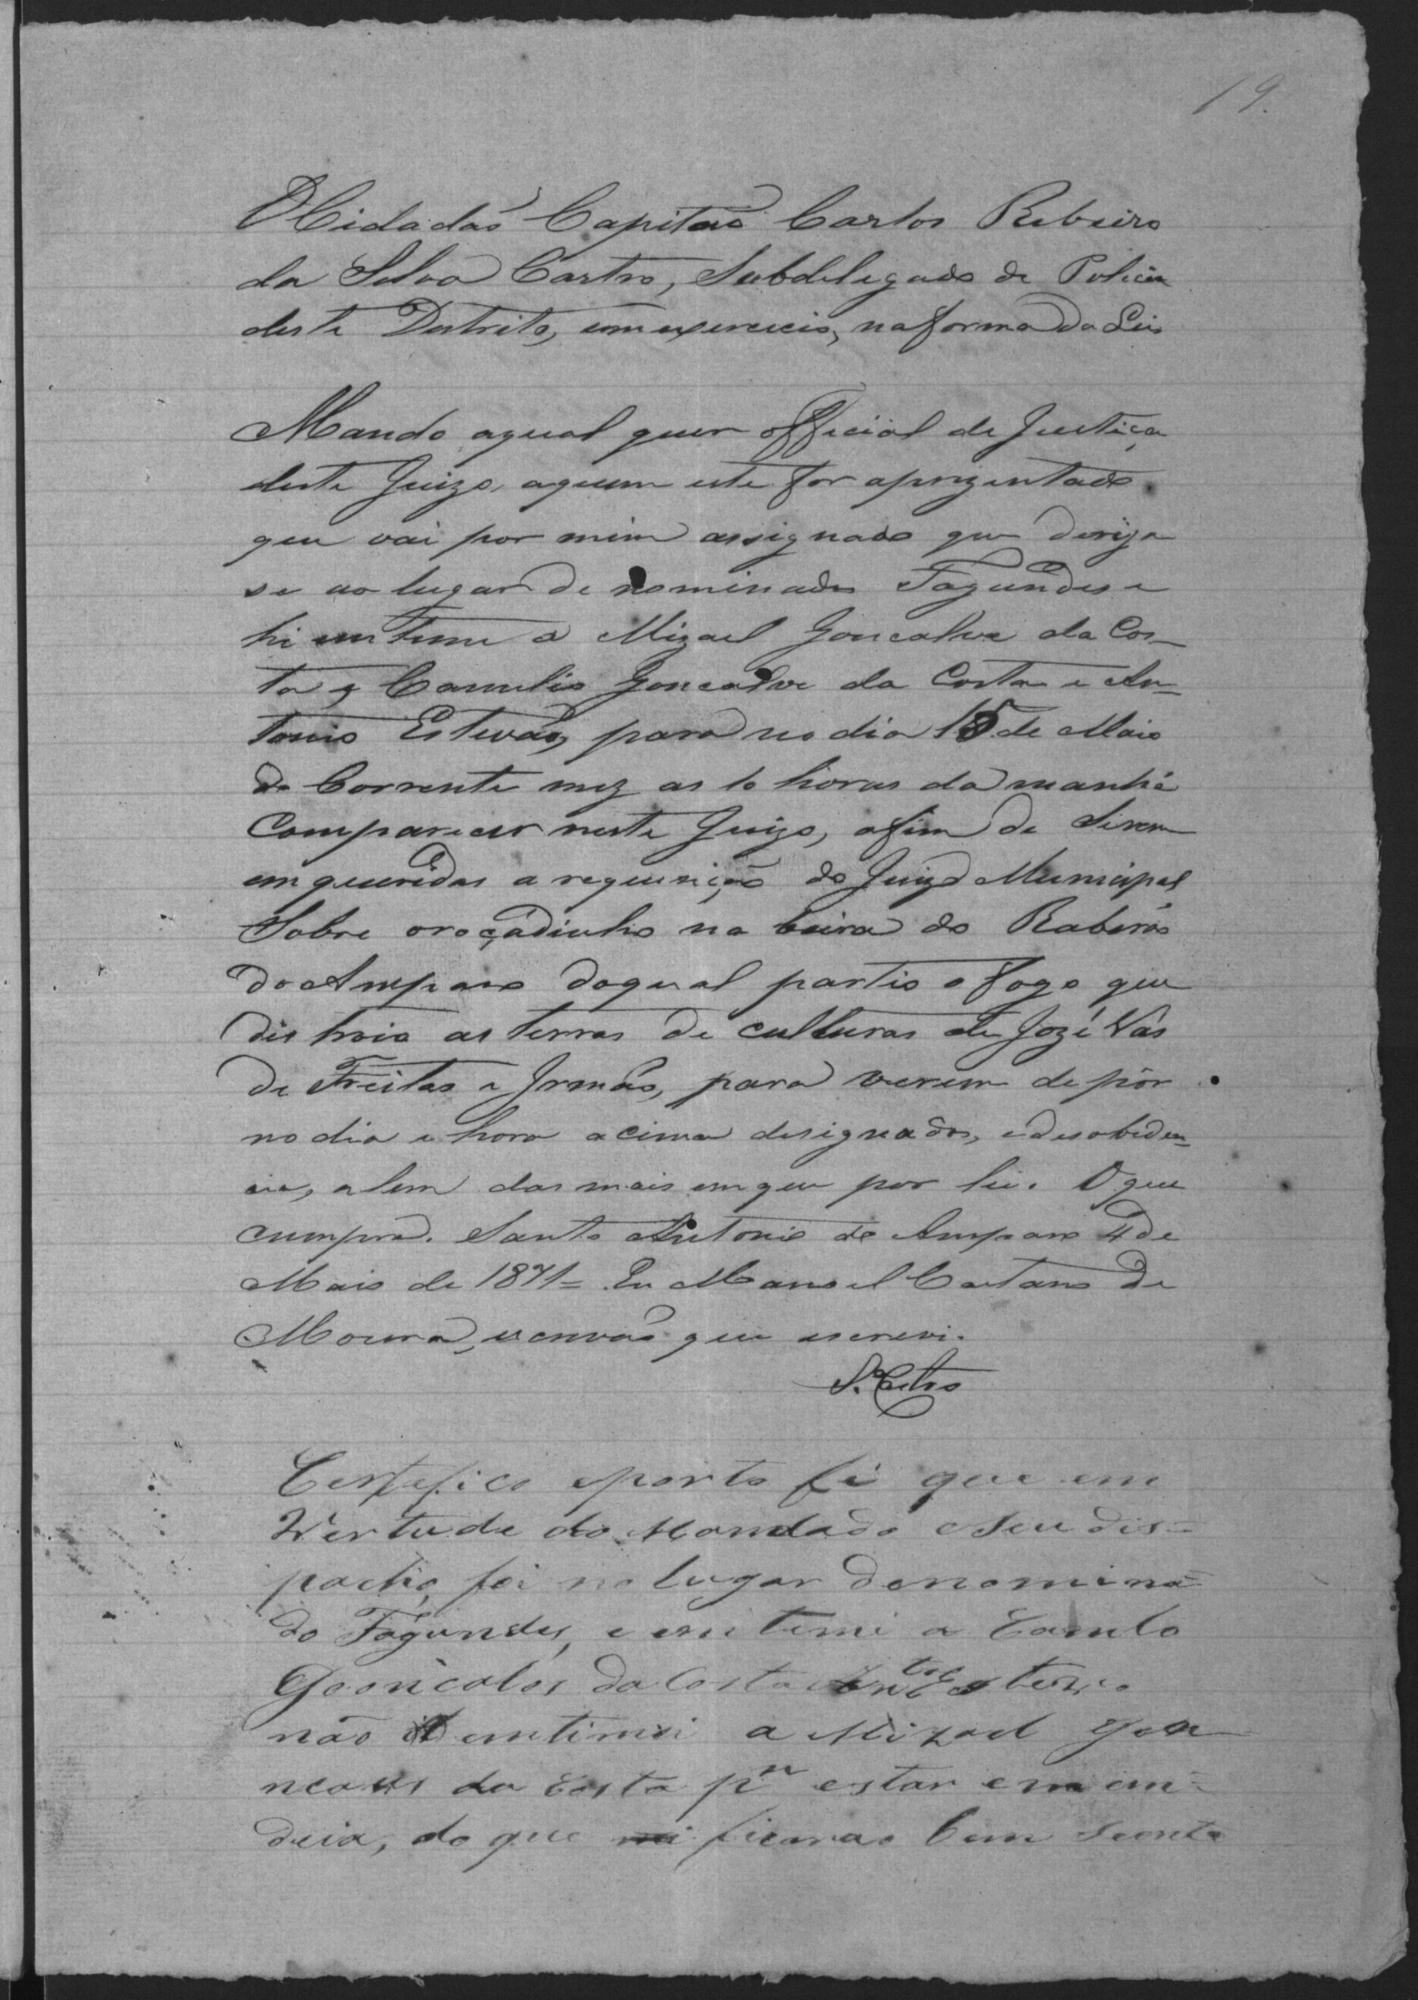 19.
O Cidadaõ Capitaõ Carlos Ribeiro
da Silva Castro, Subdelegado de Policia
deste Destrito, em exercicio, na forma da Lei
Mando aqual quer official de Justiça
deste Juizo, aquem este for aprezentado
que vai por mim assignado que derija
se ao lugar de nominado Fagundes e
hi entime a Mizael Goncalve da Cos-
ta, e Camilio Goncalve da Costa e An-
tonio Estevaõ, para no dia 15 de Maio
do Corrente mez as 10 horas da manhã
Comparecer neste Juizo, afim de Serem
enqueridas a requisiçaõ do Juizo Municipal
Sobre oroçadinho na beira do Raberaõ
do Amparo doqual partio o fogo que
dis troio as terras de culturas de Jozé Vas
de Freitas e Irmaõs, para verem depôr
no dia e hora acima designados, e desobiden-
cia, alem das mais em que por lei. O que
cumpra. Santo Antonio do Amparo 4 de
Maio de 1871= Eu Manoel Caetano de
Moura, escrivaõ que escrevi.
S. Castro
Certefico eporto fé que em
Vertude do Mandado e Seu dis=
pacho, foi no lugar denomina
do Fagundes, e entimi a Camilo
Goncalves da Costa Antº Estevão
não entimei a Mizael Gon
ncalves da Costa pr estar em em-
deia, do que ficarão bem Siente